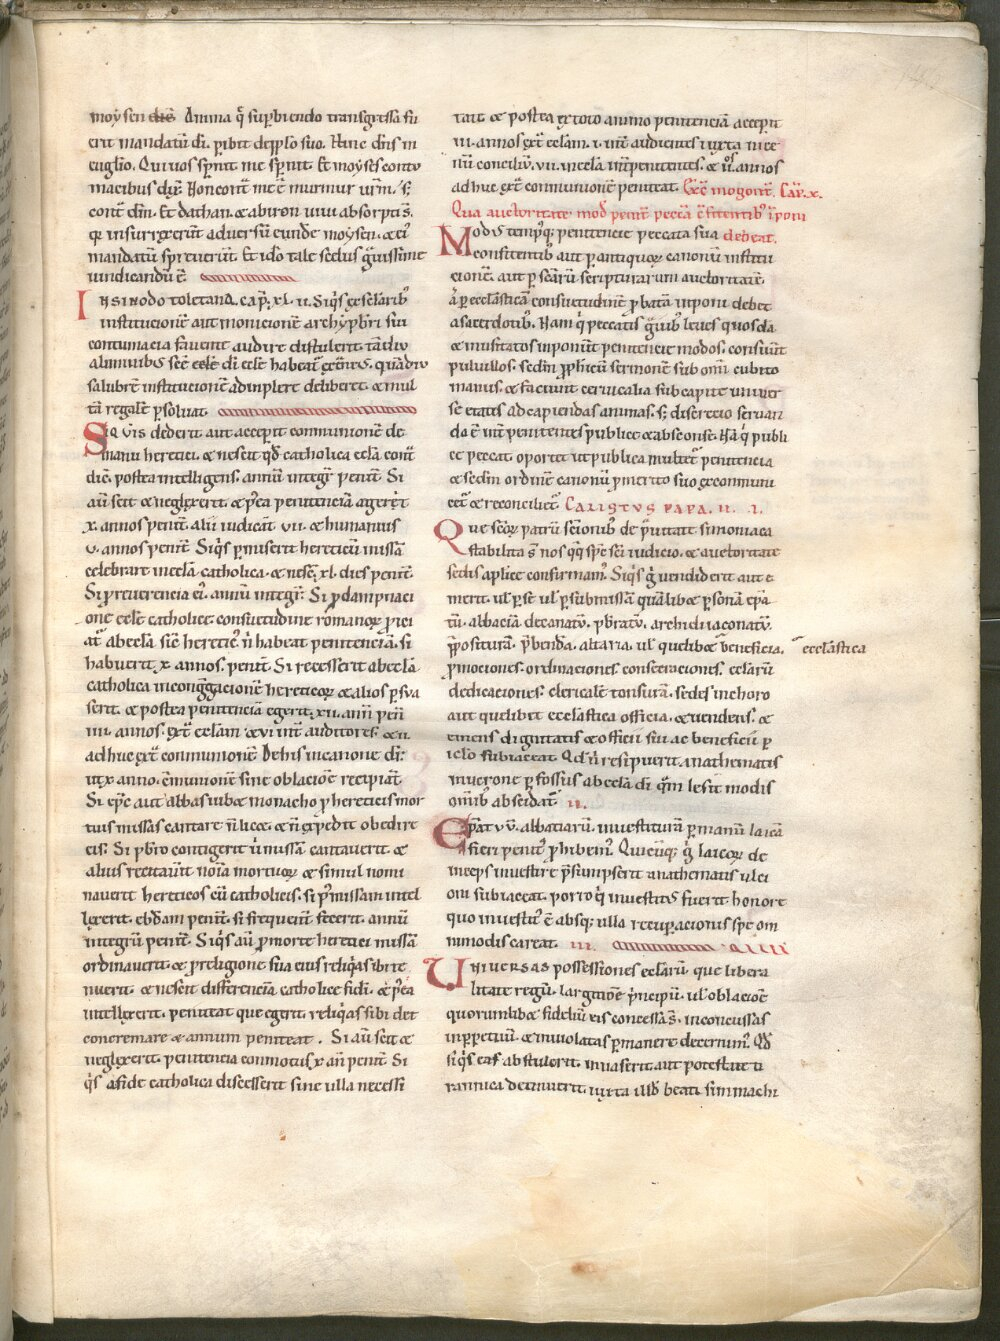 moysen dic̄ Anima q̄ sup̄biendo transgressa fu
erit mandatū dī. ꝑibit de pp̄lo suo. Hinc dn̄s in
euḡlio. Qui uos sp̄nit me sp̄nit. Et moyses contu
macibus
Non cont̄ me ē murmur ur̄m. s;
cont̄ dīm. Et dathan. & abiron uiui absorpti s̄.
qr̄ insurrexerūt aduersū eunde moysen. & eı᾽
mandatū spreuerūt. Et ido tale scelus ḡuissime
uindicandū ē.
In sinodo toletana. cap̄. xl. ii. Siq̄s ex sclarib᾽
institucionē aut monicionē archyp̄bri sui
contumacia fauente audire distulerit. tādiu
aluminibs scē ecclē dī eclē habeat̄ extor̄ris. quādiu
salubrē institucionē adinplere deliberet. & mul
tā regalē ꝑsoluat.
Siquis dederit aut acceperit communionē de
manu heretici. & nescit qd̄ catholica eclā cont̄
dic̄. postea intelligens. annū integr̄ penit̄. Si
aū scit & neglexerit. & p᾽ea penitenciā agerēt
x. annos penit̄. alii iudicāt vii. & humanius
v. annos penit̄. Siq̄s ꝑmiserit hereticū missā
celebrare in eclā catholica. & nesc̄. xl. dies penit̄.
Si ꝓ reuerencia ei᾽. annū integr̄. Si ꝓ dampnaci
one eclē catholice consuetudine romanoꝝ ꝓici
at̄ ab eclā sic̄ heretic᾽ n̄ habeat penitenciā. si
habuerit. x annos. penit̄. Si recesserit ab eclā
catholica in congḡgacionē hereticoꝝ & alios ꝑsua
serit. & postea penitenciā egerit. xii. annī penī
iiii. annos. ext̄ eclam & vi int̄ auditores. & ii
adhuc ext̄ communionē De his in canone dī:
ut x anno. c̄munionē sine oblacionē recipiat̄
Si ep̄c aut abbas iubet monacho ꝓ hereticis mor
tuis missas cantare n̄ licet. & n̄ expedit obedire
eis. Si p̄bro contigerit u̇ missā cantauerit &
alius recitauit noīa mortuoꝝ & simul nomi
nauerit hereticos cū catholicis. si p̄ missam intel
lexerit. ebd̄am penit̄. si frequent̄ fecerit. annū
integrū penit̄. Siq̄s aū ꝓ morte heretici missā
ordinauerit. & ꝓ religione sua eius reliq̄as sibi re
nuerit. & nescit differenciā catholice fidī. & p᾽ea
intellexerit. penitat que egerit. reliq̄as sibi det
concremare & annum peniteat. Si aū scit &
neglexerit. penitencia conmotus. x an̄ penit̄. Si
q̄s a fide catholica discesserit sine ulla necessi
tate & postea ex toto animo penitenciā acceperit
iii. annos ext̄ eclam. i. int̄ audientes iuxta nice
nū conciliū. vii. in eclā int̄ penitentes. & ii᾽os annos
adhuc ext̄ communionē peniteat. Ex᾽c mogont̄. Cap̄. x.
Qua auctoritate mod᾽ penit̄ peccā c̄fitentib᾽ īponi
debeat.
Modus tempꝯq; penitencie peccata sua
confitentib᾽ aut ꝑ antiquoꝝ canonū institu
cionē. aut ꝑ scārū scripturarum auctoritatē.
aut ꝑ eccl̄asticā consuetudinē ꝓbatā inponi debet
a sacerdotib᾽. Nam q̄ peccatis ḡuib᾽ leues quosdā
& inusitatos inponūt penitencie modos. consuūt
puluillos. sc̄dm ꝓph̄icū sermonē sub om̄i cubito
manus. & faciunt ceruicalia sub capite univer
se etatis ad capiendas animas. s; discrecio seruan
da ē int̄ penitentes publice & absconse. Nā q̄ publi
ce peccat. oportet ut publica multet̄ penitencia
& sc̄dm ordinē canonū ꝓ merito suo excommuni
cet̄ & reconciliet̄. CALISTVS PAPA. II. I.
Que scōꝝ patrū sc̄ionib᾽ de ꝓuitate simoniaca
stabilita s̄ nos q̄q; sp̄c sc̄i iudicio. & auctoritate
sedis aplice confirmam᾽. Siq̄s ḡ uendiderit aut e
merit. ul᾽ ꝑ se ul᾽ ꝑ submissā quālibet ꝑsonā ep̄a
tū. abbaciā. decanatū. p̄bratū. archidiaconatū.
p̄positurā. p̄bendā. altaria. ul᾽ quelibet beneficia. eccl̄astica
ꝓmociones. ordinaciones. consecraciones. eclarū
dedicaciones. clericalē tonsurā. sedes in choro
aut quelibet eccl̄astica officia. & uendens. &
emens dignitatis & officii sui ac beneficiī ꝑ
iclo subiaceat. Qd᾽ n̄ resipuerit anathematis
mucrone ꝑfossus ab eclā dī q̄m lesit modis
om̄ib᾽ abscidat̄. II.
Ep̄at vū. abbaciarū. inuestiturā ꝑ manū laicā
fieri penit᾽ ꝓhibem᾽. Quicūq; ḡ laicoꝝ de
inceps inuestire p̄sumpserit anathematis ulci
oni subiaceat. porro q̄ inuestitus fuerit honore
quo inuestit᾽ ē absq; ulla recup̄acionis spe om
nimodis careat. III.
Universas possessiones eclarū. que libera
litate regū. largitionē p̄ncipū. ul᾽ oblacionē
quorumlibet fideliū eis concessas s̄. inconcussas
in ꝑpetuū. & inuiolatas ꝑmanere decernim᾽. Qd᾽
siq̄s eas abstulerit. inuaserit. aut potestate ti
rannica detinuerit. iuxta illd᾽ beati simmachi